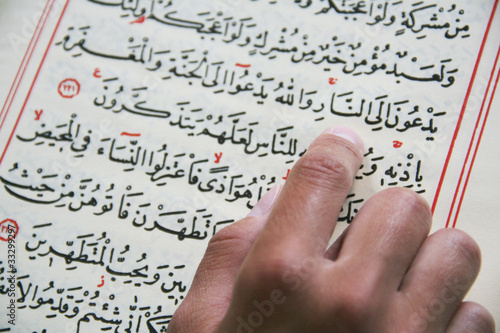 مِنْ مُشْرِكَةٍ وَلَوْ أَعْجَبَتْكُمْ وَلَا تُنْكِحُوا
وَلَعَبْدٌ مُؤْمِنٌ خَيْرٌ مِنْ مُشْرِكٍ وَلَوْ أَعْجَبَكُمْ أُولٰئِكَ
يَدْعُونَ إِلَى النَّارِ وَاللّٰهُ يَدْعُوا إِلَى الْجَنَّةِ وَالْمَغْفِرَةِ
بِإِذْنِهِ لِلنَّاسِ لَعَلَّهُمْ يَتَذَكَّرُونَ ﴿٢٢١﴾
هُوَ أَذًى فَاعْتَزِلُوا النِّسَاءَ فِي الْمَحِيضِ
تَطَهَّرْنَ فَأْتُوهُنَّ مِنْ حَيْثُ
وَيُحِبُّ الْمُتَطَهِّرِينَ
شِئْتُمْ وَقَدِّمُوا
Adobe Stock